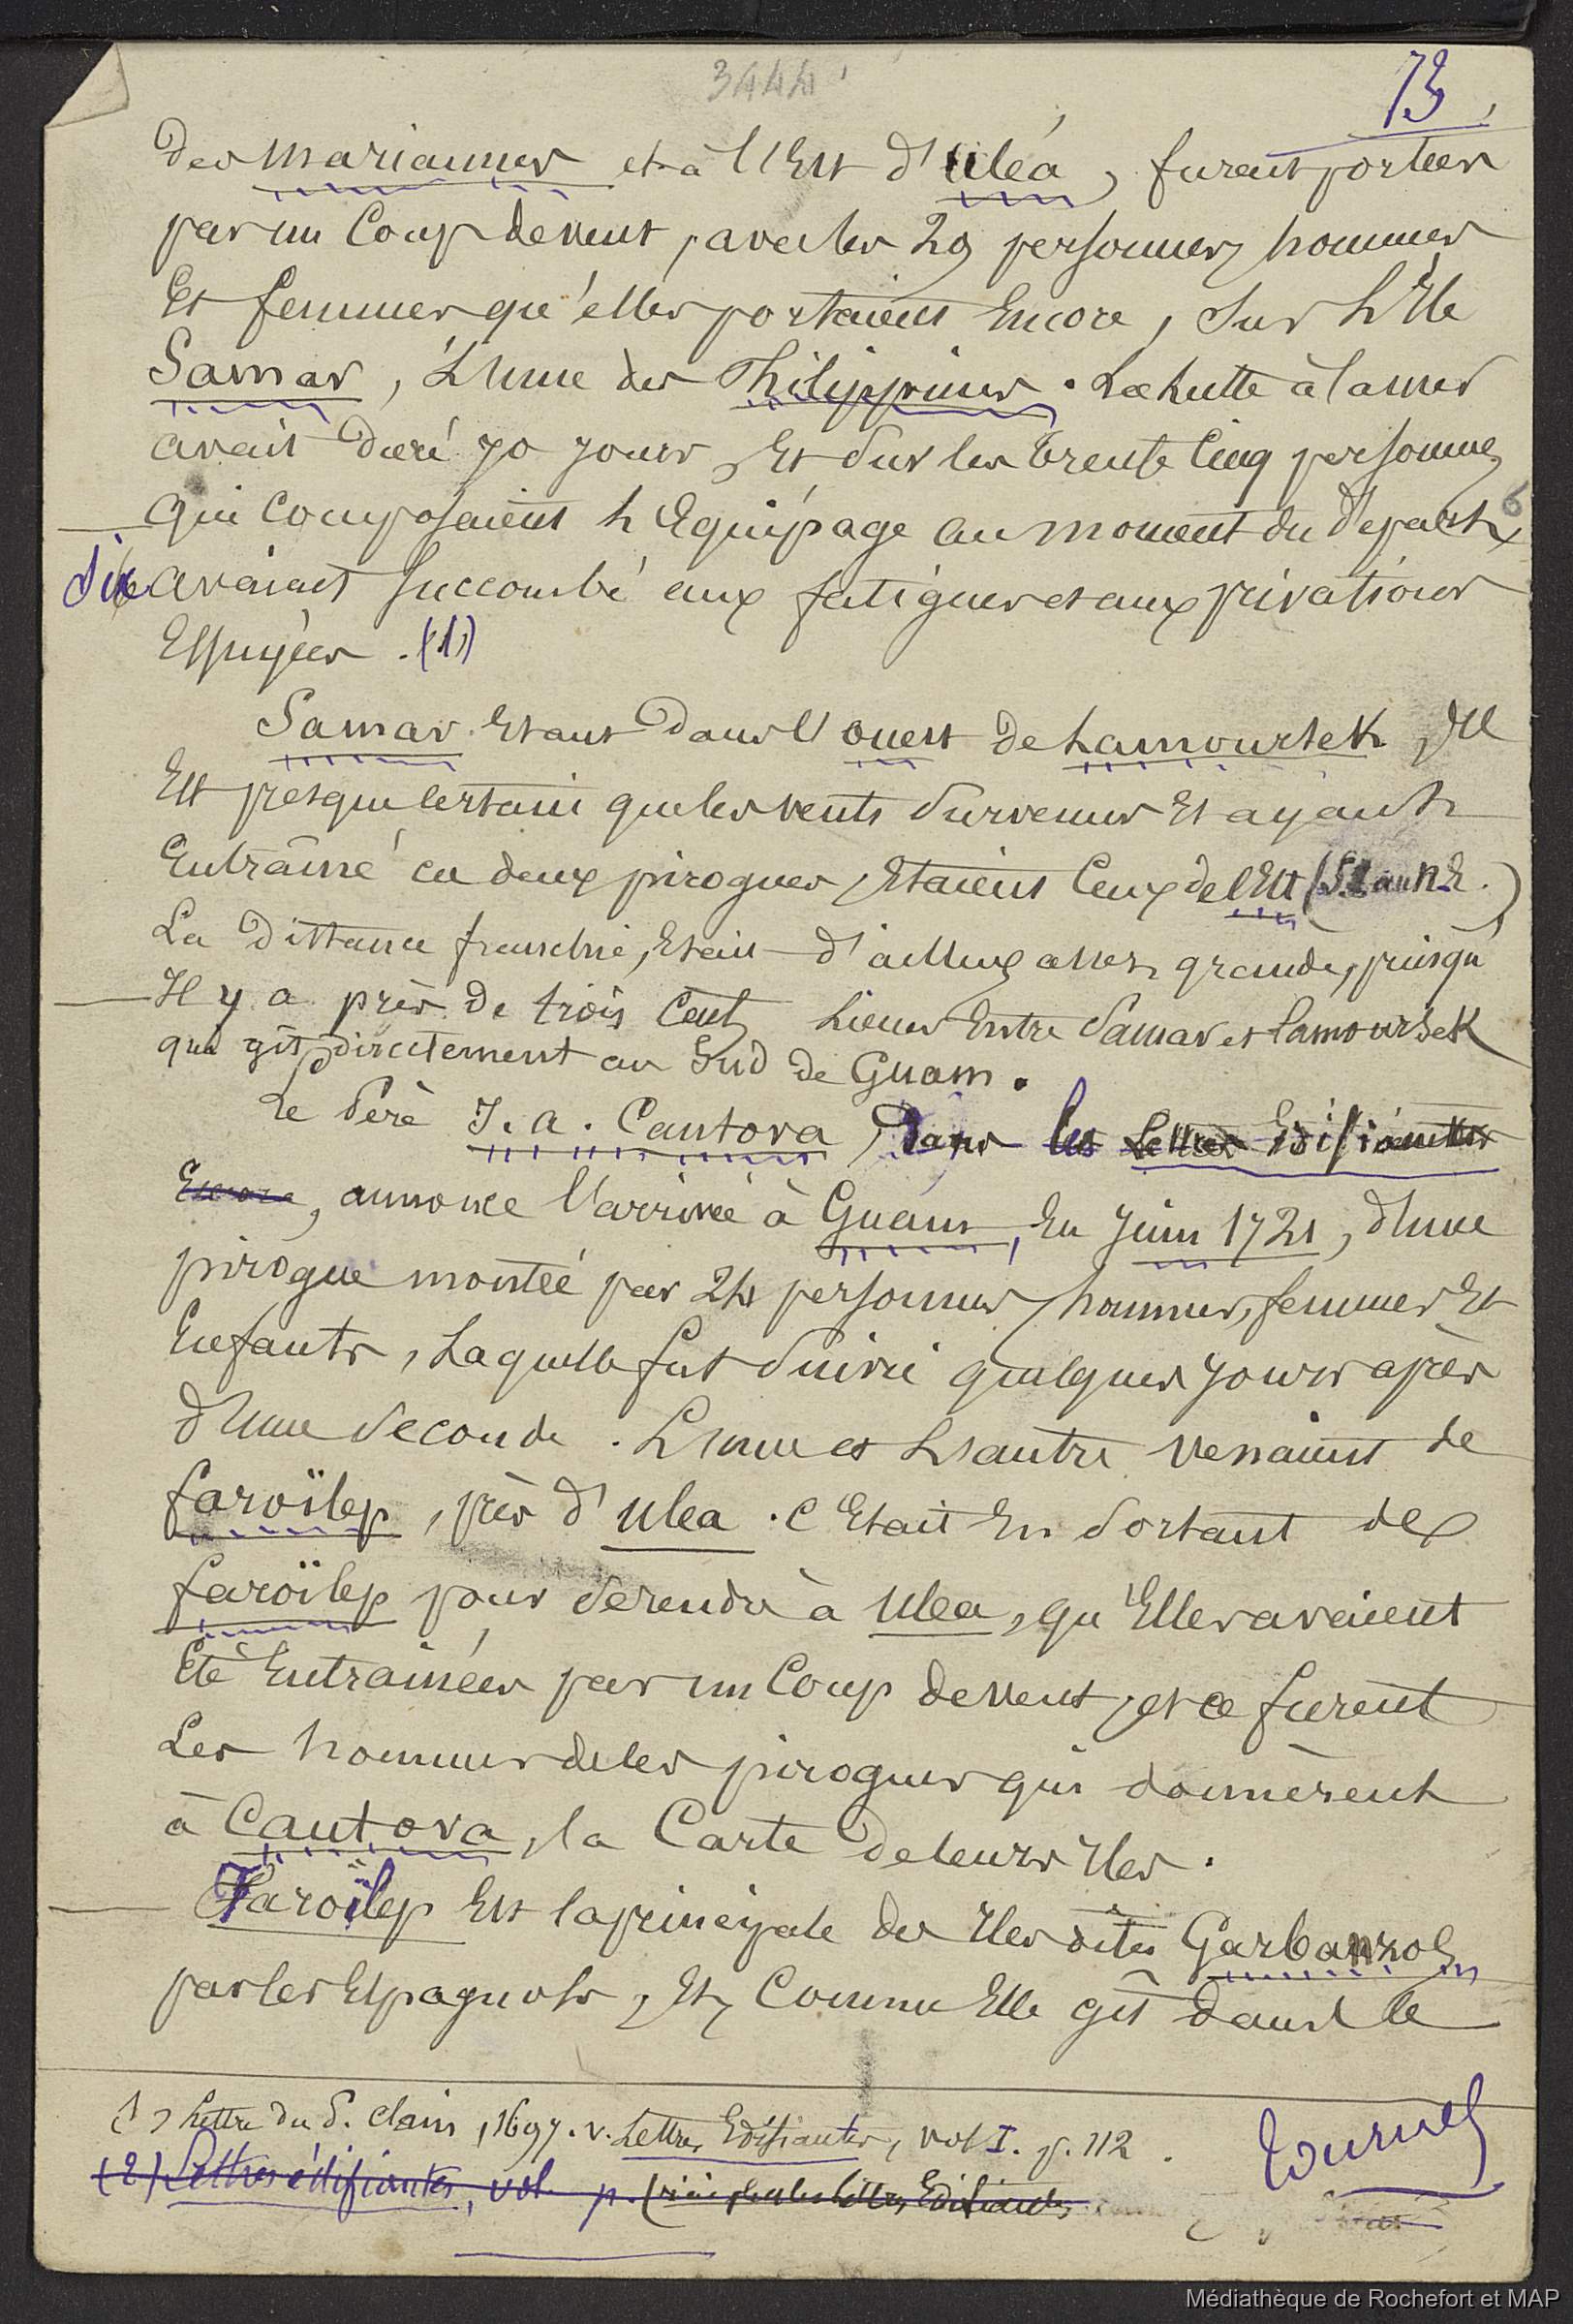 3444
73
des Mariannes et à l'Est d'Uléa, furent portées
par un Coup de vent, avec les 29 personnes, hommes
Et femmes qu'elles portaient Encore, Sur L'Ile
Samar, L'Une des Philippines. La lutte à la mer
avait Duré 70 jours, Et Sur les trente Cinq personnes
qui Composaient L'Equipage au moment du Départ, 6
six avaient Succombé aux fatigues et aux privations
Essuyées. (1)
Samar Etant Dans l'ouest de Lamoursek, Il
Est presque Certain que les vents Survenus Et ayant
Entraîné ces deux pirogues, Etaient Ceux de l'Est (S.E au N.E.)
La Distance franchie, Etait d'ailleurs assez grande, puisqu'
Il y a près de trois Cents Lieues Entre Samar et Lamoursek
qui gît directement au Sud de Guam.
Le Père J. A. Cantova, Dans les Lettres Edifiantes
Encore, annonce l'arrivée à Guam, En Juin 1721, d'Une
pirogue montée par 24 personnes, hommes, femmes Et
Enfants, Laquelle fut Suivie quelques jours après
d'Une Seconde. L'une et L'autre venaient de
faroïlep, près d'Ulea. C'Etait En Sortant de
faroïlep pour Se rendre à Ulea, qu'Elles avaient
Eté Entraînées par un Coup de vent, et ce furent
Les hommes de ces pirogues qui donnèrent
à Cantova, la Carte De leurs Iles.
Faroïlep Est la principale des Iles dites Garbanzos
par les Espagnols, Et, Comme Elle gît dans le
(1) Lettre du P. Clain, 1697. v. Lettres Edifiantes, vol I. p. 112.
(2) Lettres édifiantes, vol p.
tournez
Médiathèque de Rochefort et MAP